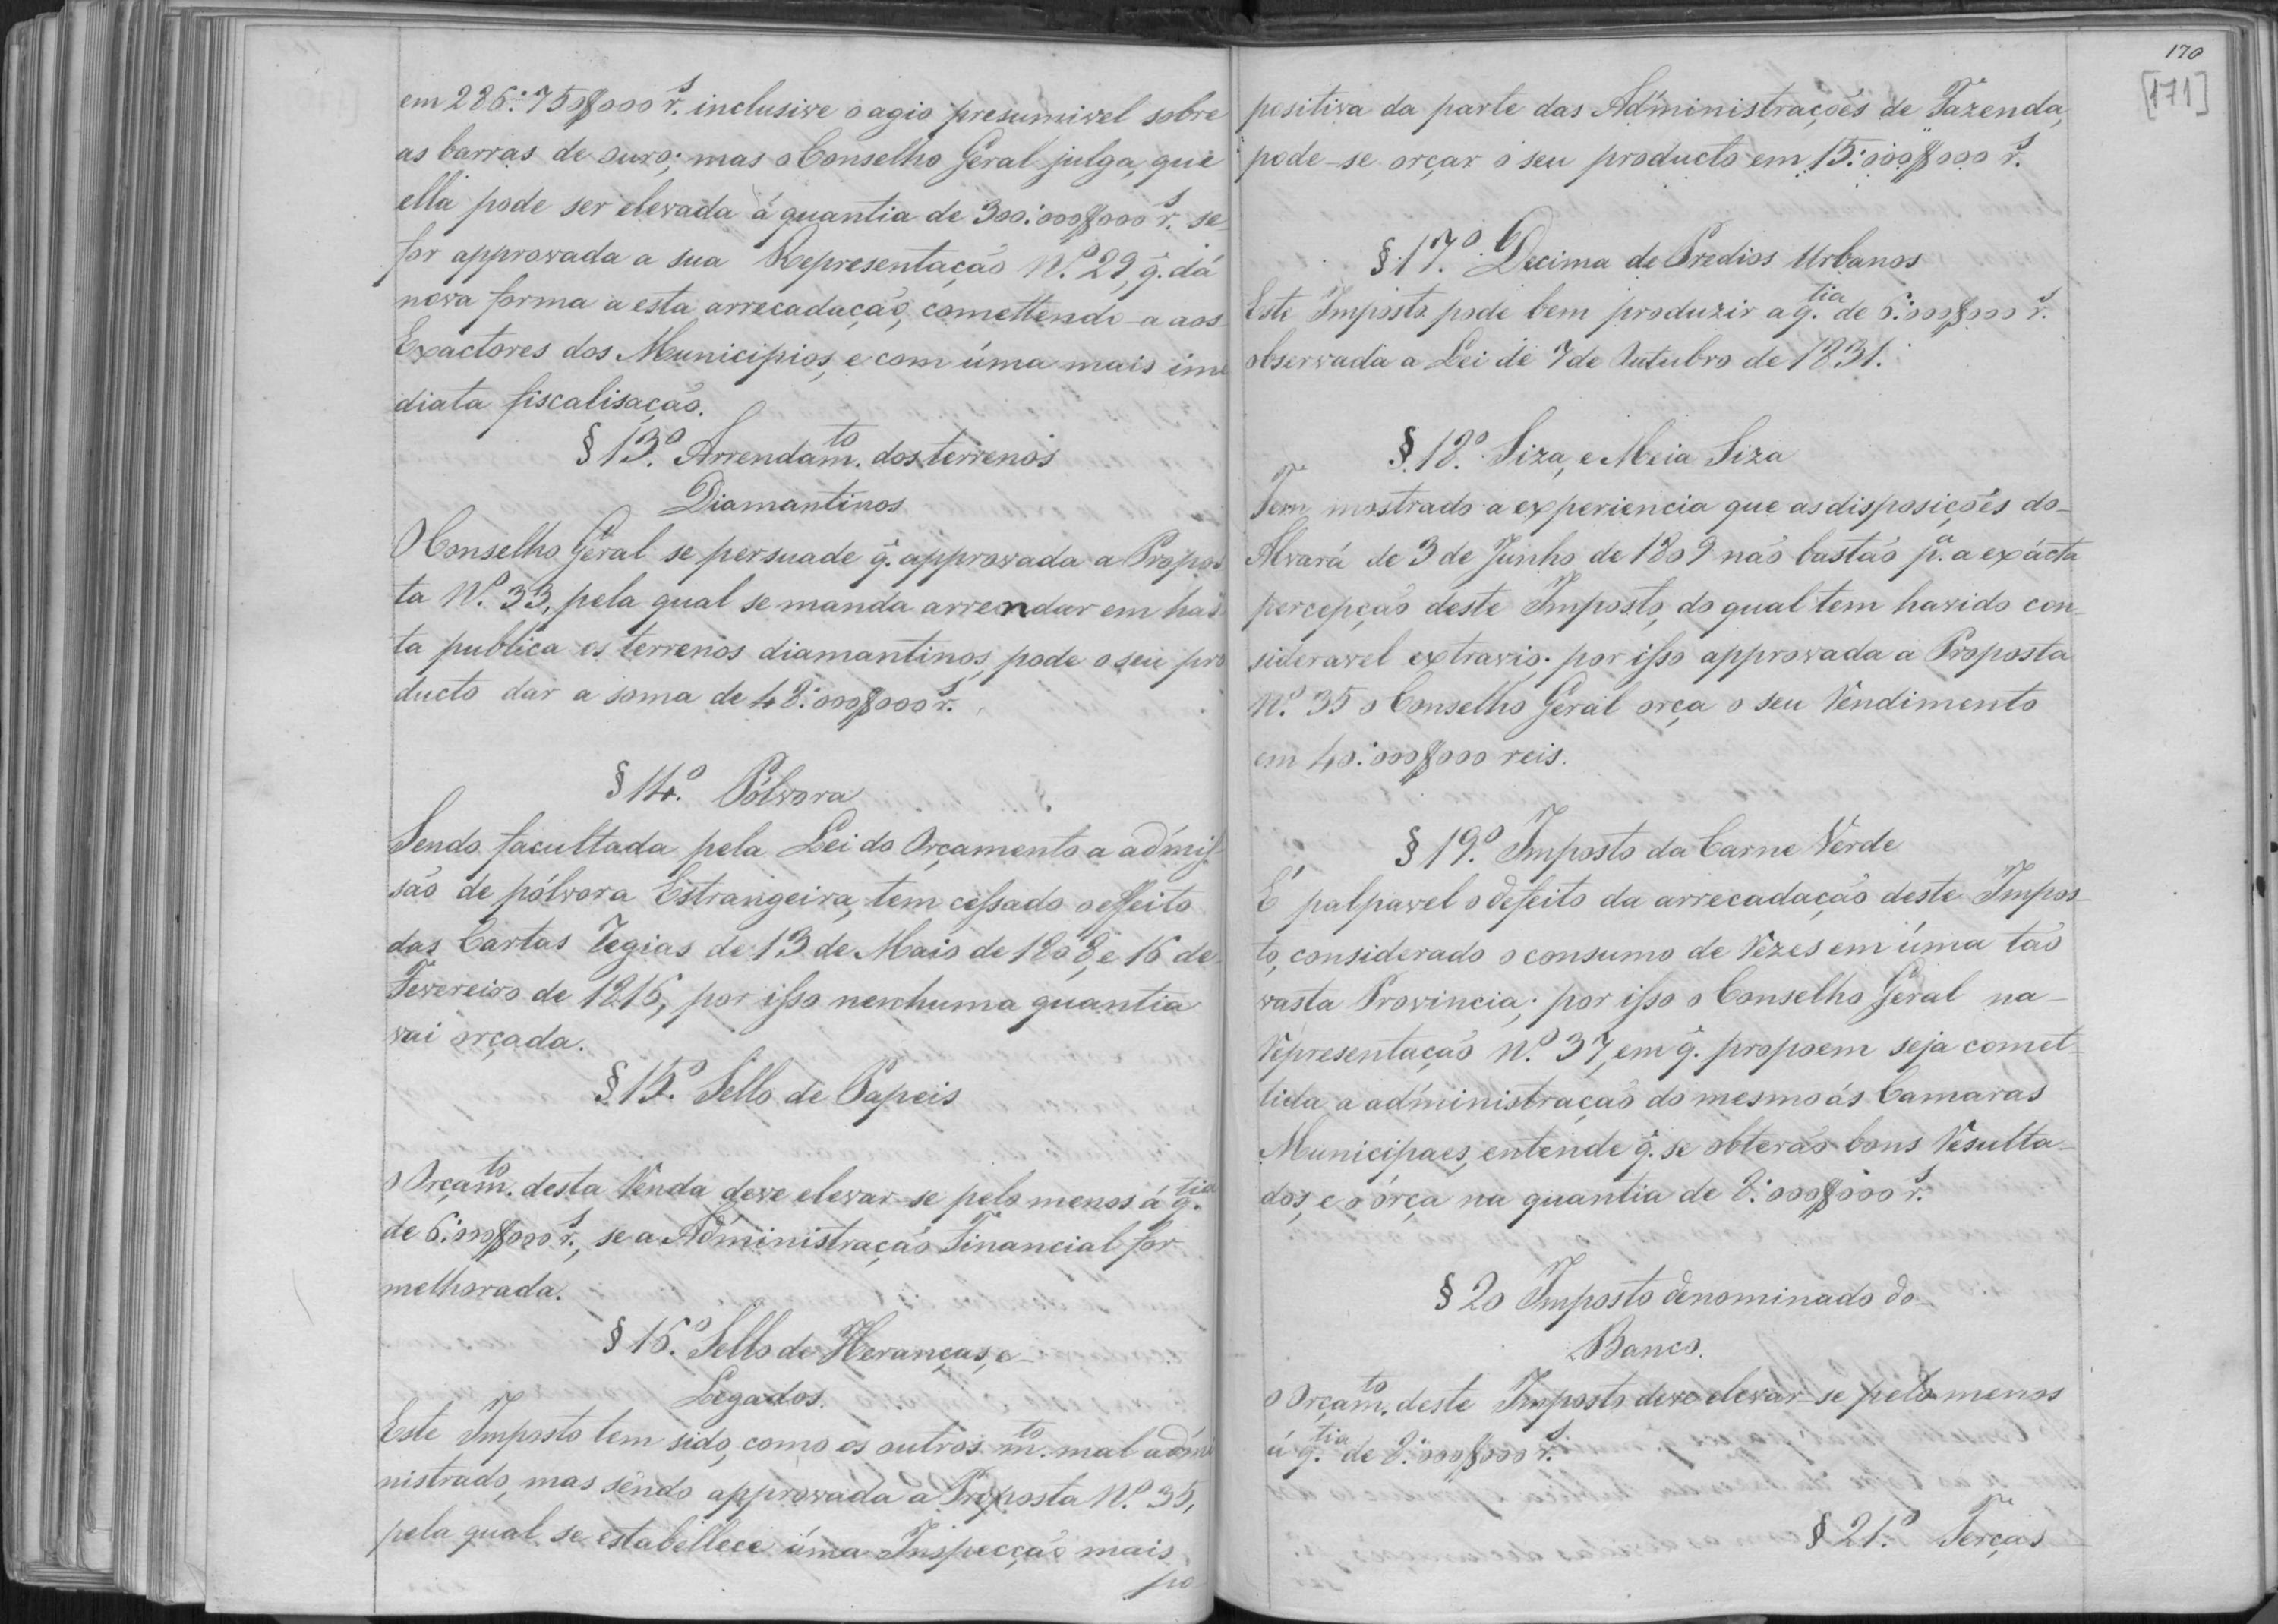 em 286:750$000 r.s inclusive o agio presumivel sobre
as barras de ouro; mas o Conselho Geral julga, que
ella pode ser elevada á quantia de 300:000$000 r.s se
for approvada a sua Representação N.o 29, q̃. dá
nova forma a esta arrecadação, comettendo-a aos
Exactores dos Municipios, e com úma mais ime
diata fiscalisação.
§ 13.o Arrendam.to dos terrenos
Diamantinos
O Conselho Geral se persuade q̃. approvada a Propos
ta N.o 33, pela qual se manda arrendar em has
ta publica os terrenos diamantinos, pode o seu pro
ducto dar a soma de 48:000$000 r.s
§ 14.o Pólvora
Sendo facultada pela Lei do Orçamento a admis
são de pólvora Estrangeira, tem cessado o effeito
das Cartas Regias de 13 de Maio de 1808, e 16 de
Fevereiro de 1816, por isso nenhuma quantia
vai orçada.
§ 15.o Sello de Papeis
O Orçam.to desta Renda deve elevar-se pelo menos á q.tia
de 6:000$000 r.s, se a Administração Financial for
melhorada.
§ 16.o Sello de Heranças, e
Legados.
Este Imposto tem sido, como os outros m.to mal admi
nistrado, mas sendo approvada a Proposta N.o 35,
pela qual se estabellece úma Inspecção mais
po
170
[171]
positiva da parte das Administrações de Fazenda,
pode-se orçar o seu producto em 15:000$000 r.s
§ 17.o Decima de Predios Urbanos
Este Imposto pode bem produzir a q.tia de 6:000$000 r.s
observada a Lei de 7 de Outubro de 1831.
§ 18.o Siza, e Meia Siza
Tem mostrado a experiencia que as disposições do
Alvará de 3 de Junho de 1809 não bastão p.a a exácta
percepção deste Imposto, do qual tem havido con-
sideravel extravio; por isso approvada a Proposta
N.o 35 o Conselho Geral orça o seu Rendimento
em 40:000$000 reis.
§ 19.o Imposto da Carne Verde
É palpavel o defeito da arrecadação deste Impos-
to, considerado o consumo de Rezes em úma tão
vasta Provincia; por isso o Conselho Geral na-
Representação N.o 37, em q̃. propoem seja comet-
tida a administração do mesmo ás Camaras
Municipaes, entende q̃. se obterão bons Resulta-
dos, e o órça na quantia de 8:000$000 r.s
§ 20 Imposto denominado do-
Banco.
O Orçam.to deste Imposto deve elevar-se pelo menos
á q.tia de 8:000$000 r.s
§ 21.o Terças